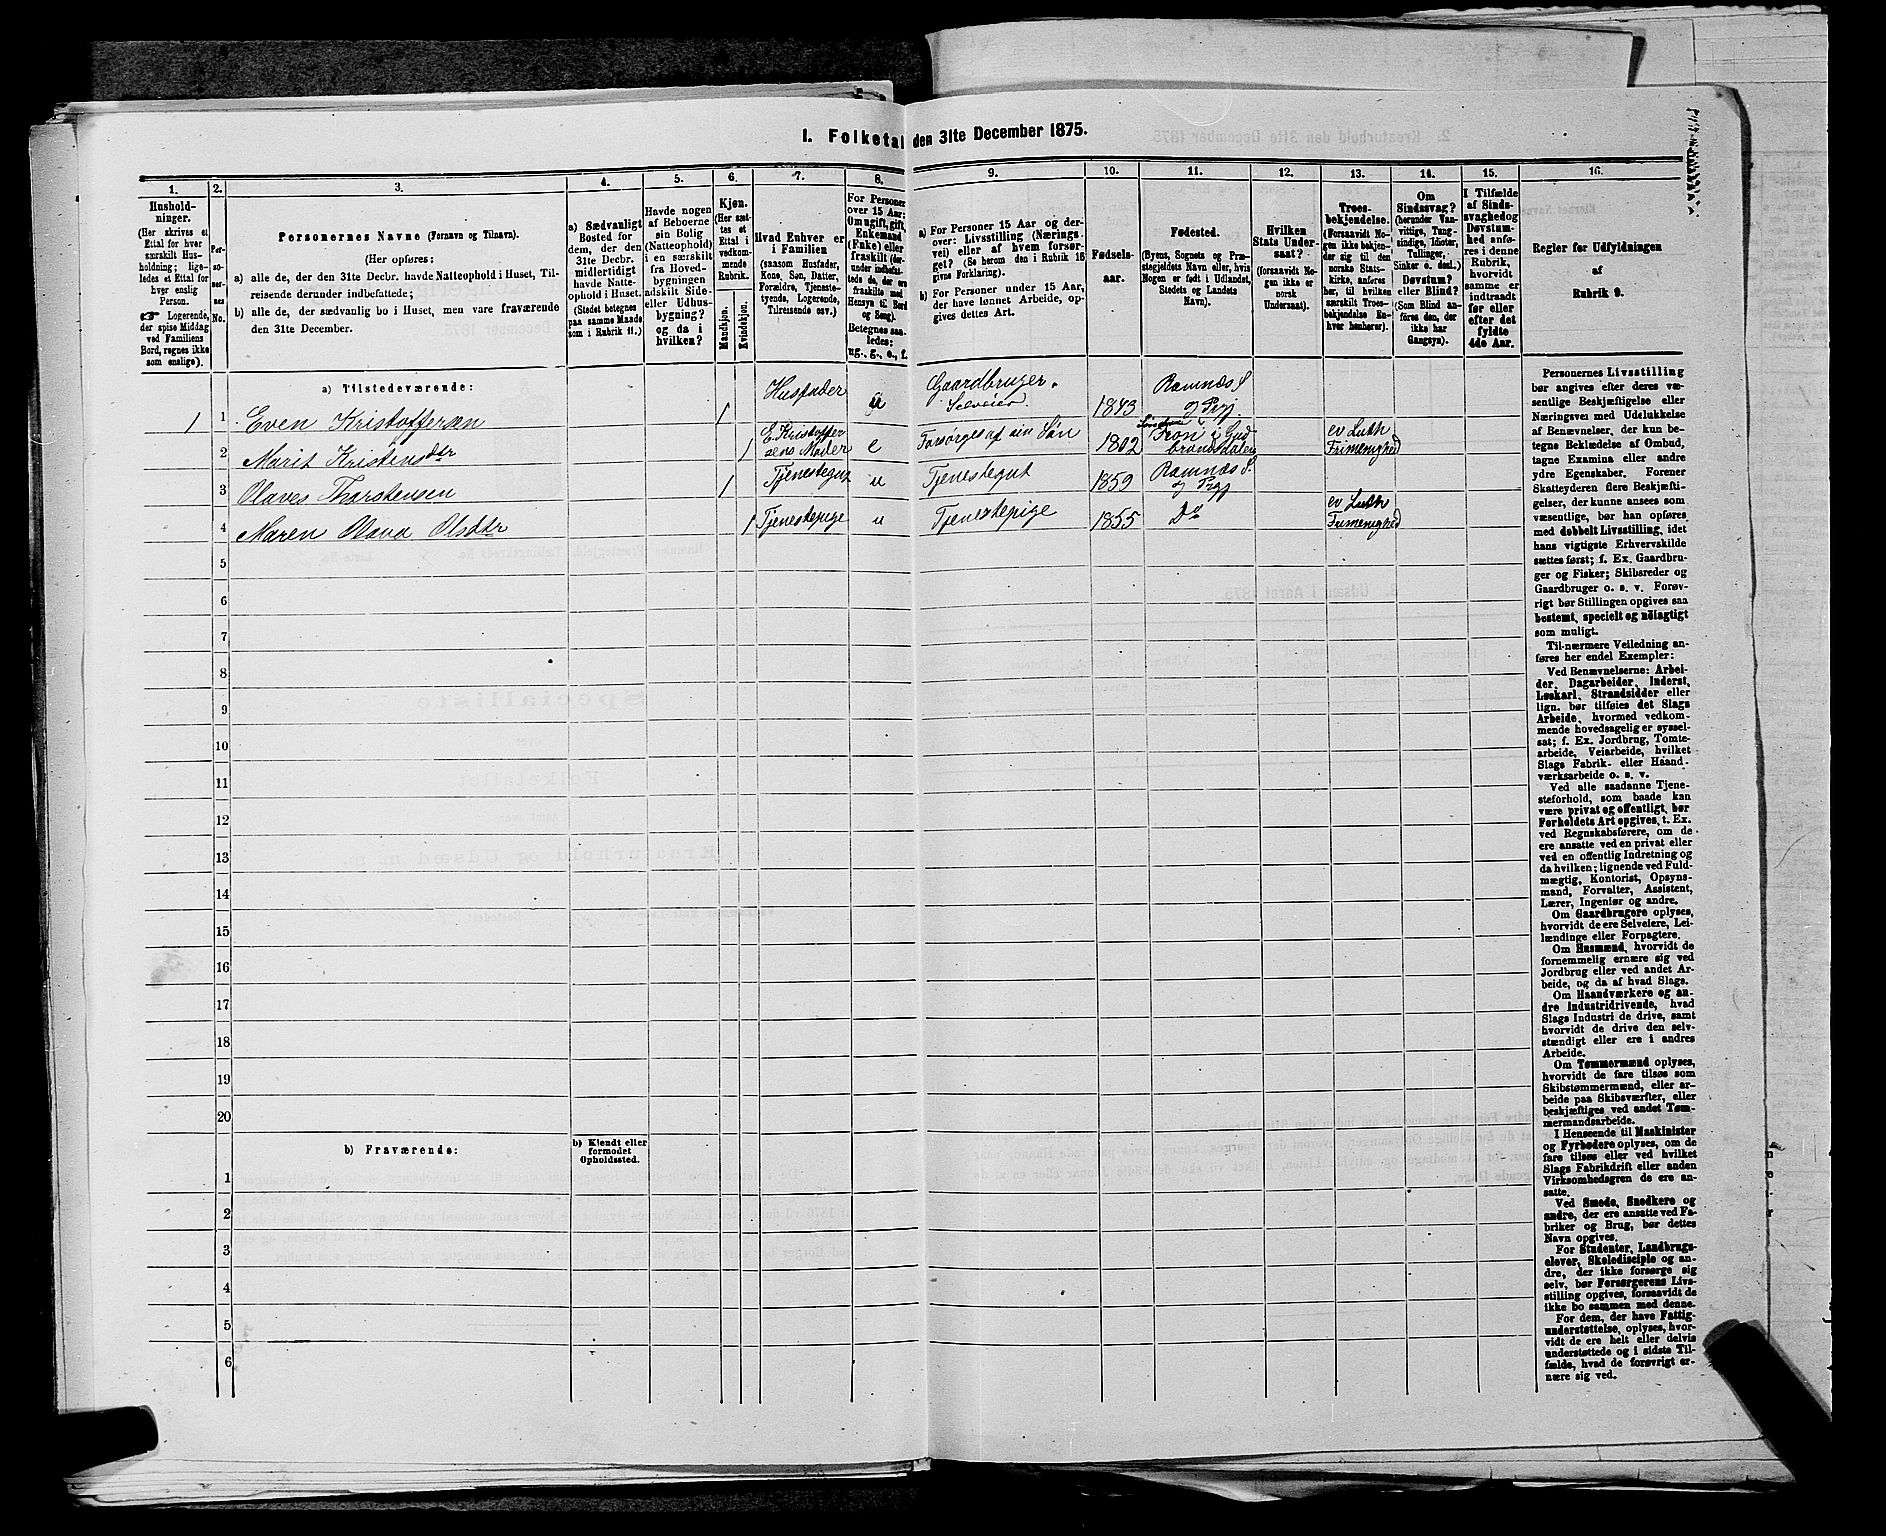 I. Folketal den 31te December 1875.
1. 2. 3. 4. 5. 6. 7. 8. 9. 10. 11. 12. 13. 14. 15. 16.
Husholdninger.
(Her skrives et Ettal for hver særskilt Husholdning; ligeledes et Ettal for hver enslig Person.
☞ Logerende, der spise Middag ved Familiens Bord, regnes ikke som enslige).
Personernes No.
Personernes Navne (Fornavn og Tilnavn).
(Her opføres:
a) alle de, der den 31te Decbr. havde Natteophold i Huset, Tilreisende derunder indbefattede;
b) alle de, der sædvanlig bo i Huset, men vare fraværende den 31te December.
a) Sædvanligt Bosted for dem, der den 31te Decbr. midlertidigt havde Natteophold i Huset. (Stedet betegnes paa samme Maade som i Rubrik 11.)
Havde nogen af Beboerne sin Bolig (Natteophold) i en særskilt fra Hovedbygningen adskilt Side- eller Udhusbygning? og da i hvilken?
Kjøn.
(Her sættes et Ettal i vedkommende Rubrik.
Mandkjøn. Kvindekjøn.
Hvad Enhver er i Familien
(saasom Husfader, Kone, Søn, Datter, Forældre, Tjenestetyende, Logerende, Tilreisende osv.)
For Personer over 15 Aar: Om ugift, gift, Enkemand (Enke) eller fraskilt (derunder indbefattede de, der ere fraskilte med Hensyn til Bord og Seng).
Betegnes saaledes: ug., g., e., f.
a) For Personer 15 Aar og derover: Livsstilling (Næringsvei) eller af hvem forsørget? (Se herom den i Rubrik 16 givne Forklaring).
b) For Personer under 15 Aar, der have lønnet Arbeide, opgives dettes Art.
Fødselsaar.
Fødested.
(Byens, Sognets og Præstegjeldets Navn, eller, hvis Nogen er født i Udlandet, Stedets og Landets Navn).
Hvilken Stats Undersaat?
(forsaavidt Nogen ikke er norsk Undersaat).
Troesbekjendelse.
(Forsaavidt Nogen ikke bekjender sig til den norske Statskirke, anføres her, til hvilken særskilt Troesbekjendelse Enhver henhører).
Om Sindssvag? (herunder Vanvittige, Tungsindige, Idioter, Tullinger, Sinker o. desl.) Døvstum? eller Blind? (Som Blind anføres den, der ikke har Gangsyn).
I Tilfælde af Sindssvaghed og Døvstumhed anføres i denne Rubrik, hvorvidt samme er indtraadt før eller efter det fyldte 4de Aar.
Regler for Udfyldningen
af
Rubrik 9.
a) Tilstedeværende:
1 1 Even Kristoffersen 1 Husfader u Gaardbruger. Selveier. 1843 Ramnæs S. og Prgj.
2 Marit Kristensdtr 1 E. Kristoffersens Moder e Forsørges af sin Søn 1802 Fron i Gudbrandsdalen ev Luth Frimenighed
3 Olaves Thorstensen 1 Tjenestegut u Tjenestegut 1859 Ramnæs S. og Prgj
4 Maren Olava Olsdtr 1 Tjenestepige u Tjenestepige 1855 Do ev Luth Frimenighed
5
6
7
8
9
10
11
12
13
14
15
16
17
18
19
20
b) Fraværende:
b) Kjendt eller formodet Opholdssted.
1
2
3
4
5
6
Personernes Livsstilling
bør angives efter deres væ-
sentlige Beskjæftigelse eller
Næringsvei med Udelukkelse
af Benævnelser, der kun be-
tegne Beklædelse af Ombud,
tagne Examina eller andre
ydre Egenskaber. Forener
Skatteyderen flere Beskjæfti-
gelser, der kunne ansees som
væsentlige, bør han opføres
med dobbelt Livsstilling, idet
hans vigtigste Erhvervskilde
sættes først; f. Ex. Gaardbru-
ger og Fisker; Skibsreder og
Gaardbruger o. s. v. Forøv-
rigt bør Stillingen opgives saa
bestemt, specielt og nøiagtigt
som muligt.
Til nærmere Veiledning an-
føres her endel Exempler:
Ved Benævnelserne: Arbei-
der, Dagarbeider, Inderst,
Løskarl, Strandsidder eller
lign. bør tilføies det Slags
Arbeide, hvormed vedkom-
mende hovedsagelig er syssel-
sat; f. Ex. Jordbrug, Tomte-
arbeide, Veiarbeide, hvilket
Slags Fabrik- eller Haand-
værksarbeide o. s. v.
Ved alle saadanne Tjene-
steforhold, som baade kan
være privat og offentligt, bør
Forholdets Art opgives, t. Ex.
ved Regnskabsførere, om de
ere ansatte ved en privat eller
ved en offentlig Indretning og
da hvilken; lignende ved Fuld-
mægtig, Kontorist, Opsyns-
mand, Forvalter, Assistent,
Lærer, Ingeniør og andre.
Om Gaardbrugere oplyses,
hvorvidt de ere Selveiere, Lei-
lændinge eller Forpagtere.
Om Husmænd, hvorvidt de
fornemmelig ernære sig ved
Jordbrug eller ved andet Ar-
beide, og da af hvad Slags.
Om Haandværkere og an-
dre Industridrivende, hvad
Slags Industri de drive, samt
hvorvidt de drive den selv-
stændigt eller ere i andres
Arbeide.
Om Tømmermænd oplyses,
hvorvidt de fare tilsøs som
Skibstømmermænd, eller ar-
beide paa Skibsværfter, eller
beskjæftiges ved andet Tøm-
mermandsarbeide.
I Henseende til Maskinister
og Fyrbødere oplyses, om de
fare tilsøs eller ved hvilket
Slags Fabrikdrift eller anden
Virksomhedsgren de ere an-
satte.
Ved Smede, Snedkere og
andre, der ere ansatte ved Fa-
briker og Brug, bør dettes
Navn opgives.
For Studenter, Landbrugs-
elever, Skoledisciple og an-
dre, der ikke forsørge sig
selv, bør Forsørgerens Livs-
stilling opgives, forsaavidt de
ikke bo sammen med denne.
For dem, der have Fattig-
understøttelse, oplyses, hvor-
vidt de ere helt eller delvis
understøttede og i sidste Til-
fælde, hvad de forøvrigt er-
nære sig ved.